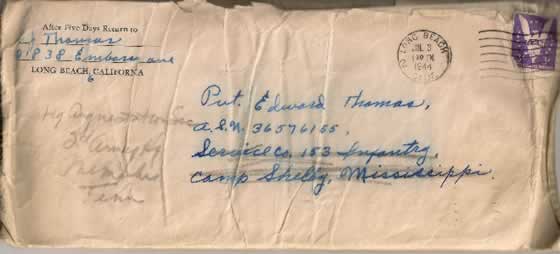 After Five Days Return to
Thomas
1838 Embassy ave
LONG BEACH, CALIFORNIA
6
LONG BEACH
JUL 3
1944
CALIF.
Pvt. Edward Thomas,
A.S.N. 36576155,
Service Co. 153 Infantry,
Camp Shelby, Mississippi.
Hq
Sec
2d Army
Memphis
Tenn